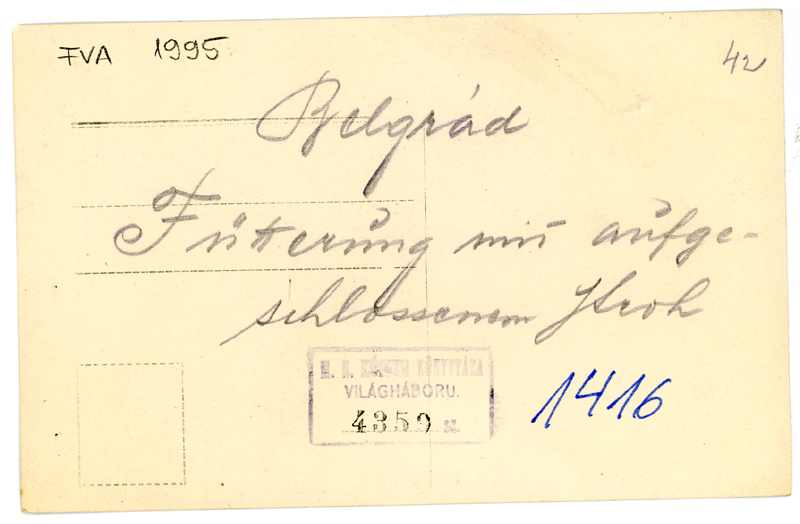 FVA 1995
42
Belgrád
Fütterung mit aufge-
schlossenem Stroh
M. N. MÚZEUM KÖNYVTÁRA
VILÁGHÁBORU.
4359 sz.
1416